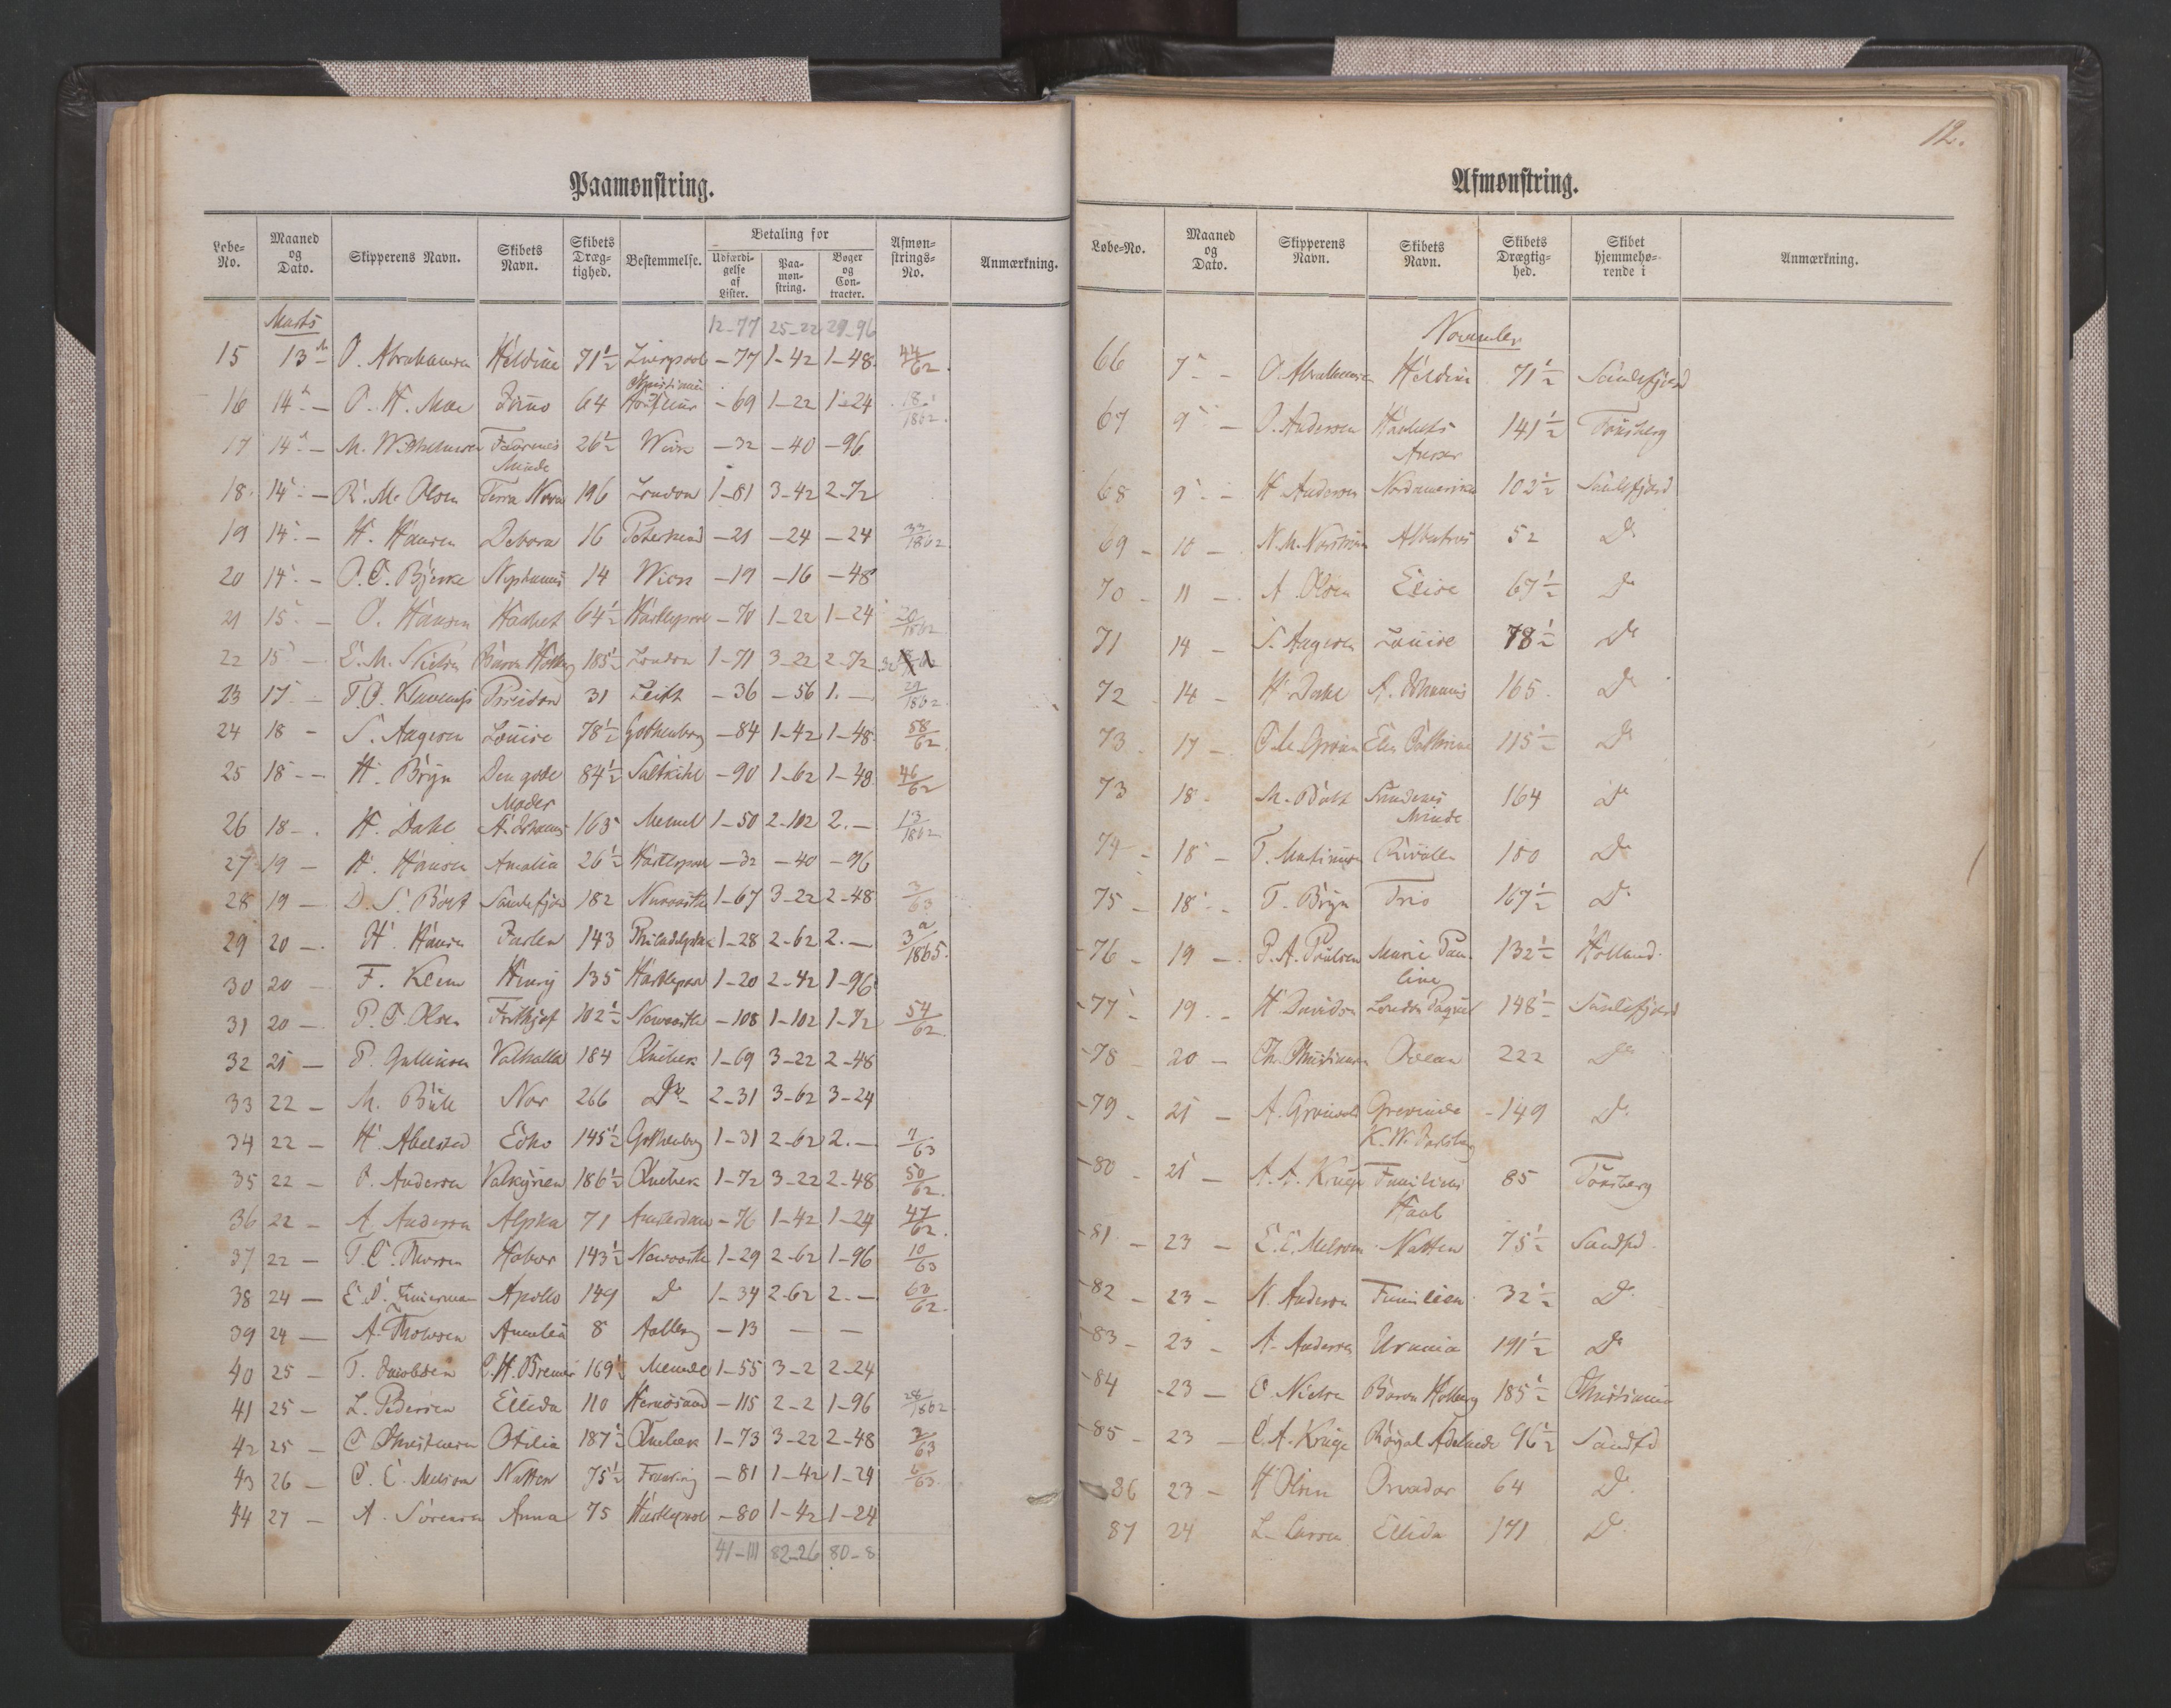 Paamønstring.
Løbe-No. Maaned og Dato. Skipperens Navn. Skibets Navn. Skibets Drægtighed. Bestemmelse. Betaling for Udfærdigelse af Lister. Paamønstring. Bøger og Contracter. Afmønstrings-No. Anmærkning.
Marts 12-77 25-22 29-96
15 13 O. Abrahamsen Heldine 71½ Liverpool -77 1-42 1-48 44/62
16 14 - O. H. Moe Juno 64 -69 1-22 1-24 18/1862
17 14 - M. Wilhelmsen Faderens Minde 26½ Wick -32 -40 -96
18 14 - R. M. Olsen Terra Nova 196 London 1-81 3-42 2-72
19 14 - H. Hansen Debora 16 Peterhead -21 -24 -24 33/1862
20 14 - O. C. Bjerke Neptunus 14 Wick -19 -16 -48
21 15 - O. Hansen Haabet 64½ Hartlepool -70 1-22 1-24 /1862
22 15 - E. M. Nielsen Baron Holberg 185½ London 1-71 3-22 2-72
23 17 - Poseidon 31 Leith -36 -56 1.- 29/1862
24 18 - S. Aagesen Louise 78½ Gothenborg -84 1-42 1-48 58/62
25 18 - H. Bryn Den gode Moder 84½ -90 1-62 1-48 46/62
26 18 - H. Dahl 165 Memel 1-50 2-102 2.- 13/1862
27 19 - H. Hansen Amalia 26½ Hartlepool -32 -40 -96
28 19 - D. S. Bort Sandefjord 182 Newcastle 1-67 3-22 2-48 3/63
29 20 - H. Hansen Jarlen 143 Philadelphia 1-28 2-62 2.- 3a/1865
30 20 - F. Klem Henry 135 Hartlepool 1-20 2-42 1-96
31 20 - P. C. Olsen Frithjof 102½ Newcastle -108 1-102 1-72 54/62
32 21 - P. Gullicksen Valhalla 184 Quebek 1-69 3-22 2-48
33 22 - M. Bull Nor 266 Do 2-31 3-62 3-24
34 22 - H. Abelsted Echo 145½ Gothenborg 1-31 2-62 2.- 7/63
35 22 - O. Andersen Valkyrien 186½ Quebek 1-72 3-22 2-48 50/62
36 22 - A. Andersen Alpha 71 Amsterdam -76 1-42 1-24 47/62
37 22 - T. C. Thorsen Habor 143½ Newcastle 1-29 2-62 1-96 10/63
38 24 - E. P. Timerman Apollo 149 Do 1-34 2-62 2.- 63/62
39 24 - A. Thoresen Amalia 8 Aalborg -13 - -
40 25 - T. Jacobsen C. H. Bremer 169½ Memel 1-55 3-2 2-24
41 25 - L. Pedersen Ellida 110 Hernøsand -115 2-2 1-96 28/1862
42 25 - C. Christensen Otilia 187½ Quebek 1-73 3-22 2-48 2/63
43 26 - C. E. Melsom Natten 75½ -81 1-42 1-24 6/63
44 27 - A. Sörensen Anna 75 Hartlepool -80 1-42 1-24
41-111 82-26 80-8
12.
Afmønstring.
Løbe-No. Maaned og Dato. Skipperens Navn. Skibets Navn. Skibets Drægtighed. Skibet hjemmehørende i Anmærkning.
November
66 7 - O. Abrahamsen Heldine 71½ Sandefjord
67 9 - O. Andersen Haabets Anker 141½ Tönsberg
68 9 - H. Andersen Nordamerika 102½ Sandefjord
69 - 10 - Albatros 52 Do
70 - 11 - A. Olsen Elise 67½ Do
71 14 - S. Aagesen Louise 78½ Do
72 14 - H. Dahl 165 Do
73 17 - Elen Cathrine 115½ Do
73 18 - M. Bull Sandens Minde 164 Do
74 18 - T. Mathisen 180 Do
75 - 18 - T. Bryn Trio 167½ Do
76 - 19 - P. A. Poulsen Marie Pauline 132½ Holland
77 - 19 - H. Davidsen London Paquet 148½ Sandefjord
78 - 20 - Chr. Christiansen Ocean 222 Do
79 - 21 - A. Grönvold Grevinde K. W. Jarlsberg 149 Do
80 - 21 - A. A. Krüge Familiens Haab 85 Tönsberg
81 - 23 - E. C. Melsom Natten 75½ Sandfd
82 - 23 - N. Andersen Familien 32½ Do
83 - 23 - A. Andersen Urania 191½ Do
84 - 23 - E. Nielsen Baron Holberg 185½ Christiania
85 - 23 - C. A. Krüge Royal Adelaide 96½ Sandfd
86 23 - H. Olsen Orvador 64 Do
87 24 L. Larsen Ellida 171 Do